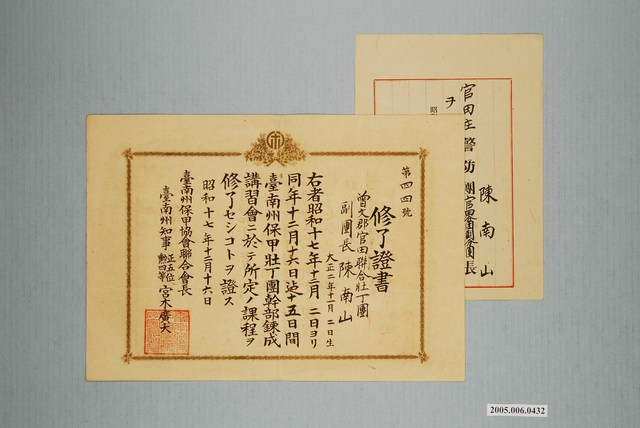 第四四號
修了證書
曾文郡官田聯合壯丁團
副團長 陳南山
大正二年十一月二日生
右者昭和十七年十二月二日ヨリ
同年十二月十六日迠十五日間
臺南州保甲壯丁團幹部鍊成
講習會ニ於テ所定ノ課程ヲ
修了セシコトヲ證ス
昭和十七年十二月十六日
臺南州保甲協會聯合會長
臺南州知事 正五位勲四等 宮木廣大
陳南山
官田庄警防團官田分團副分團長
ヲ
昭
2005.006.0432